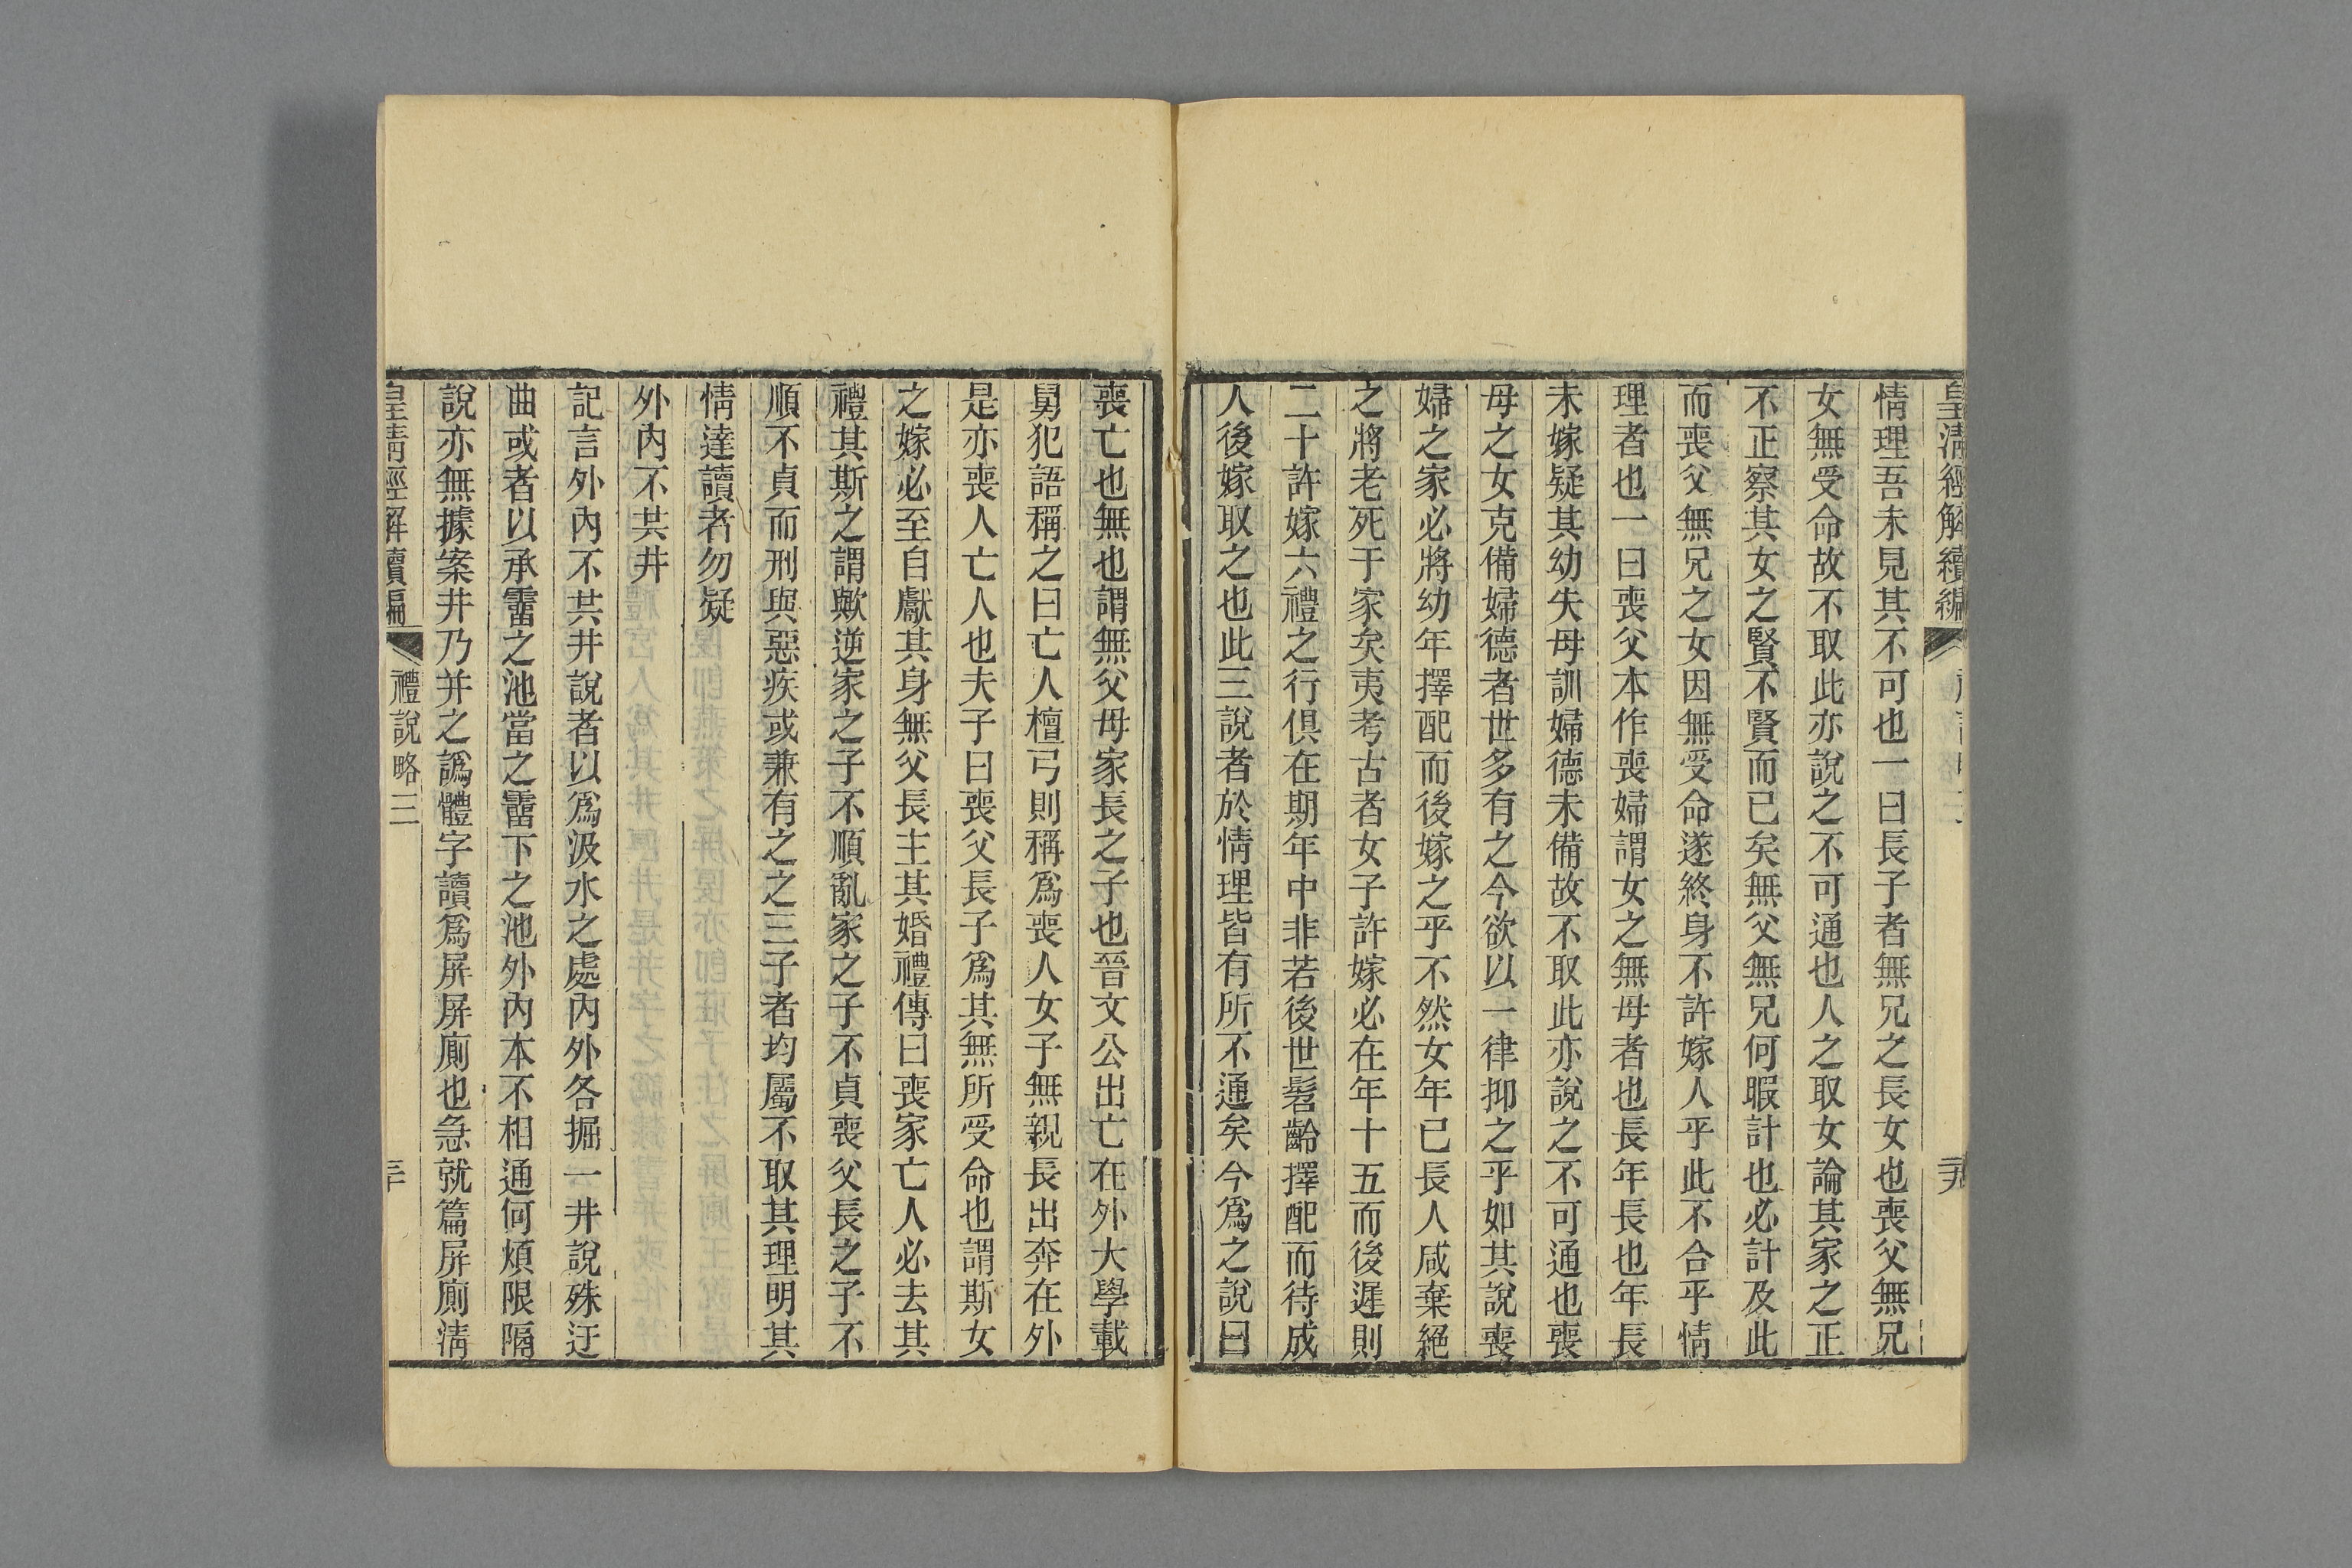 皇清經解續編
情理吾未見其不可也一曰長子者無兄之長女也喪父無兄
女無受命故不取此亦說之不可通也人之取女論其家之正
不正察其女之賢不賢而已矣無父無兄何暇計也必計及此
而喪父無兄之女因無受命遂終身不許嫁人乎此不合乎情
理者也一曰喪父本作喪婦謂女之無母者也長年長也年長
未嫁疑其幼失母訓婦德未備故不取此亦說之不可通也喪
母之女克備婦德者世多有之今欲以一律抑之乎如其說喪
婦之家必將幼年擇配而後嫁之乎不然女年已長人咸棄絕
之將老死于家矣夷考古者女子許嫁必在年十五而後遲則
二十許嫁六禮之行俱在期年中非若後世髫齡擇配而待成
人後嫁取之也此三說者於情理皆有所不通矣今爲之說曰
喪亡也無也謂無父母家長之子也晉文公出亡在外大學載
舅犯語稱之曰亡人檀弓則稱爲喪人女子無親長出奔在外
是亦喪人亡人也夫子曰喪父長子爲其無所受命也謂斯女
之嫁必至自獻其身無父長主其婚禮傳曰喪家亡人必去其
禮其斯之謂歟逆家之子不順亂家之子不貞喪父長之子不
順不貞而刑與惡疾或兼有之之三子者均屬不取其理明其
情達讀者勿疑
外內不共井
記言外內不共井說者以爲汲水之處內外各掘一井說殊迂
曲或者以承霤之池當之霤下之池外內本不相通何煩限隔
說亦無據案井乃并之譌體字讀爲屏屏廁也急就篇屏廁清
皇清經解續編 禮說略三 三十